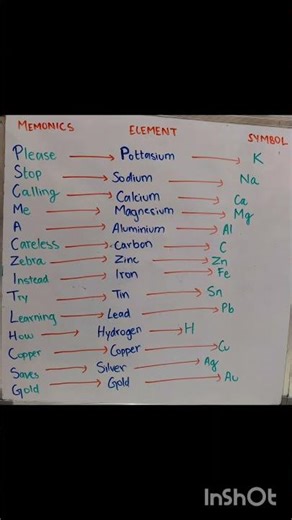 MEMONICS ELEMENT SYMBOL
Please Pottasium K
Stop Sodium Na
Calling Calcium Ca
Me Magnesium Mg
A Aluminium Al
Careless Carbon C
Zebra Zinc Zn
Instead Iron Fe
Try Tin Sn
Learning Lead Pb
How Hydrogen H
Copper Copper Cu
Saves Silver Ag
Gold Gold Au
InShOt